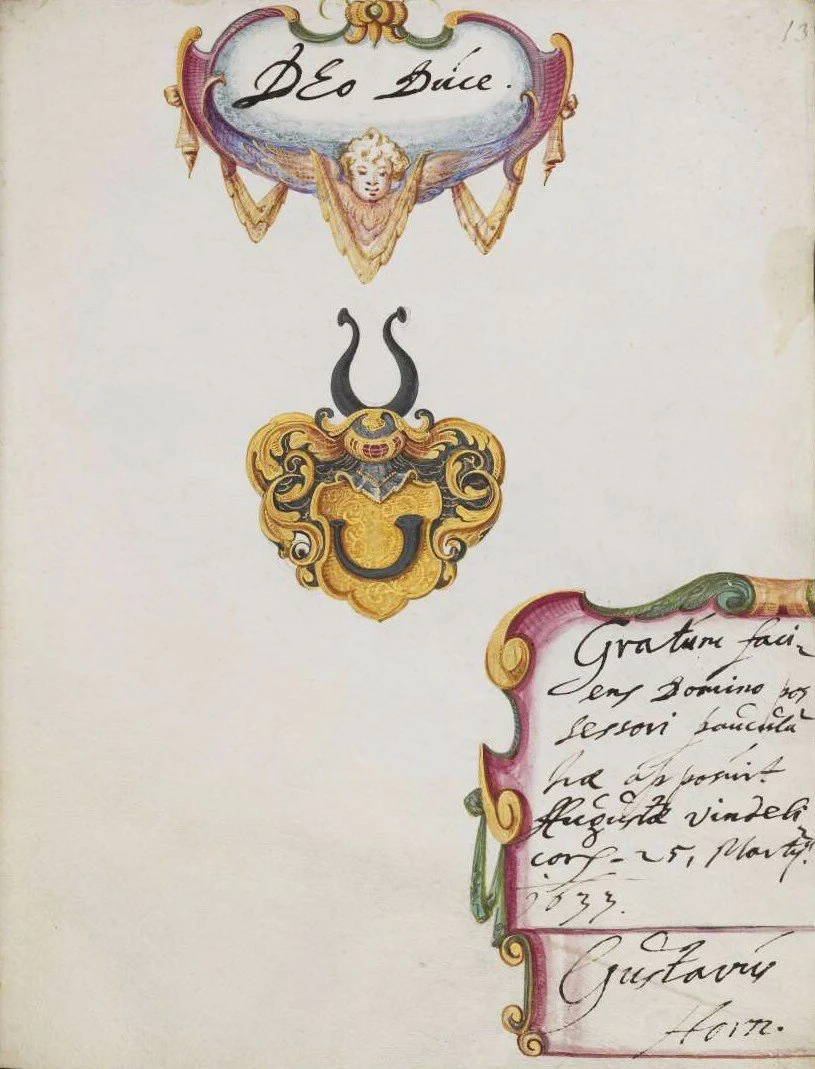 13
DEo Dúce.
Gratúm faci-
ens Domino pos
sessori paúcúla
hæc apposúit
Augustæ Vindeli
corv - 25, Martij.
1633.
Gustavús
Horn.